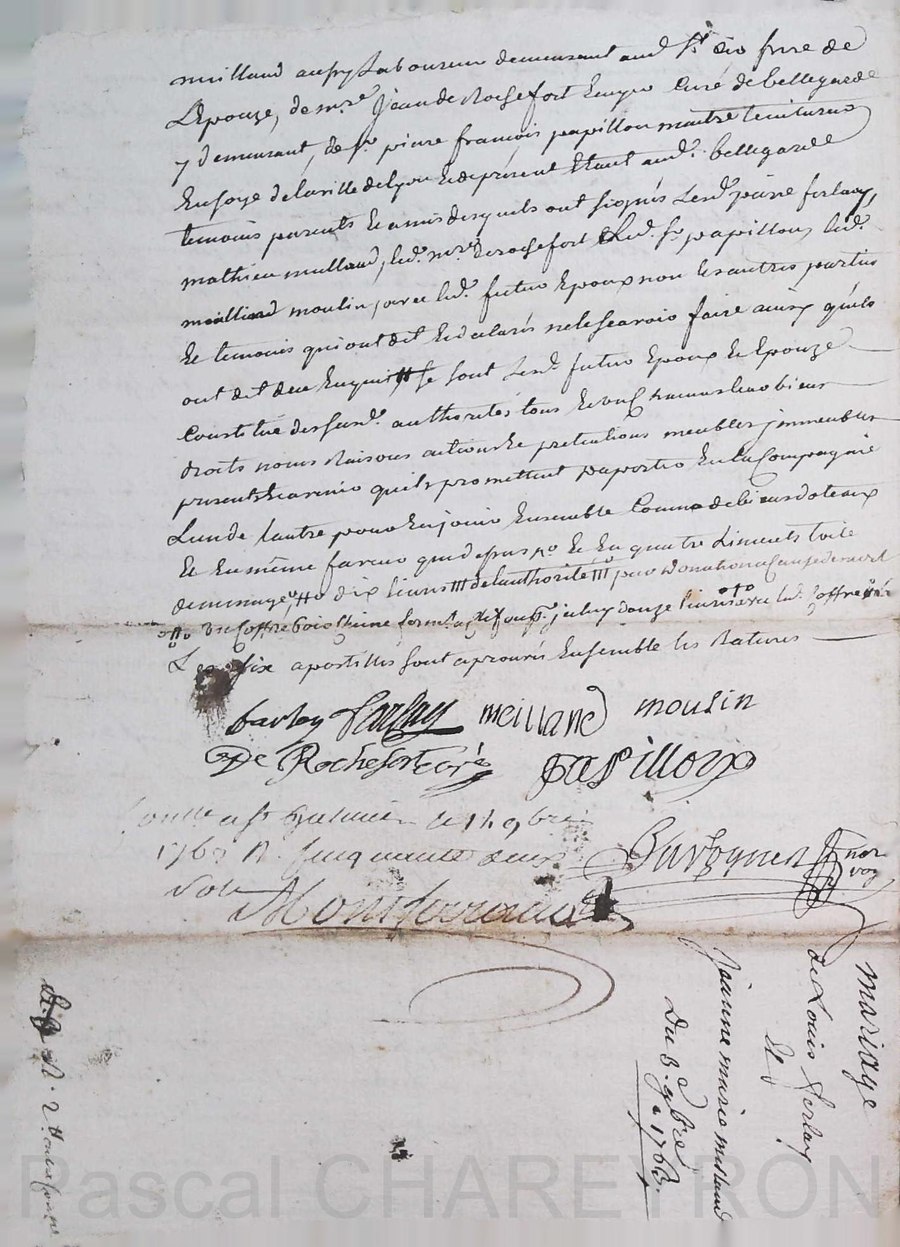 meilland aussy Laboureur demeurant aud. St. Cir frere de
L'Epouze, de mre. Jean de Rochefort Ecuyer Curé de bellegarde
y demeurant, de Sr. pierre françois papillon maitre teinturier
En soye de la ville de Lyon Et de présent Etant aud. bellegarde
temoins parents Et amis desquels ont signés Lesd. pierre ferlay,
mathieu meilland, led. mre. de rochefort Et led. Sr. papillon, led.
meilland moulin avec led. futur Epoux non les autres parties
Et temoins qui ont dit Et declarés ne le scavoir faire ainsy qu'ils
ont dit de ce Enquis se sont Lesd. futur Epoux Et Epouze
Constitué des susd. authorités tous Et un chacuns leur biens
droits noms Raisons actions Et pretentions meubles immeubles
presents Et avenir qu'ils promettent d'aporter En la Compagnie
L'un de l'autre pour En jouir Ensemble Comme de biens doteaux
Et En même faveur que dessus Et En quatre Liments toile
de menage, dix livres de l'authorité par donation à Cause de mort
Un Coffre bois Chaine fermant à clef douze livres led. Coffre
Les six apostilles sont aprouvés Ensemble les Ratures
farlay Farlay meilland moulin
De Rochefort curé papillon
Controllé a St Galmier le 14 9bre
1763 R. Cinquante deux
Montferrand
nor
roy
mariage
de Louis Ferlay
Et
Jeanne marie meilland
Du 8. 9bre. 1763.
Pascal CHAREYRON